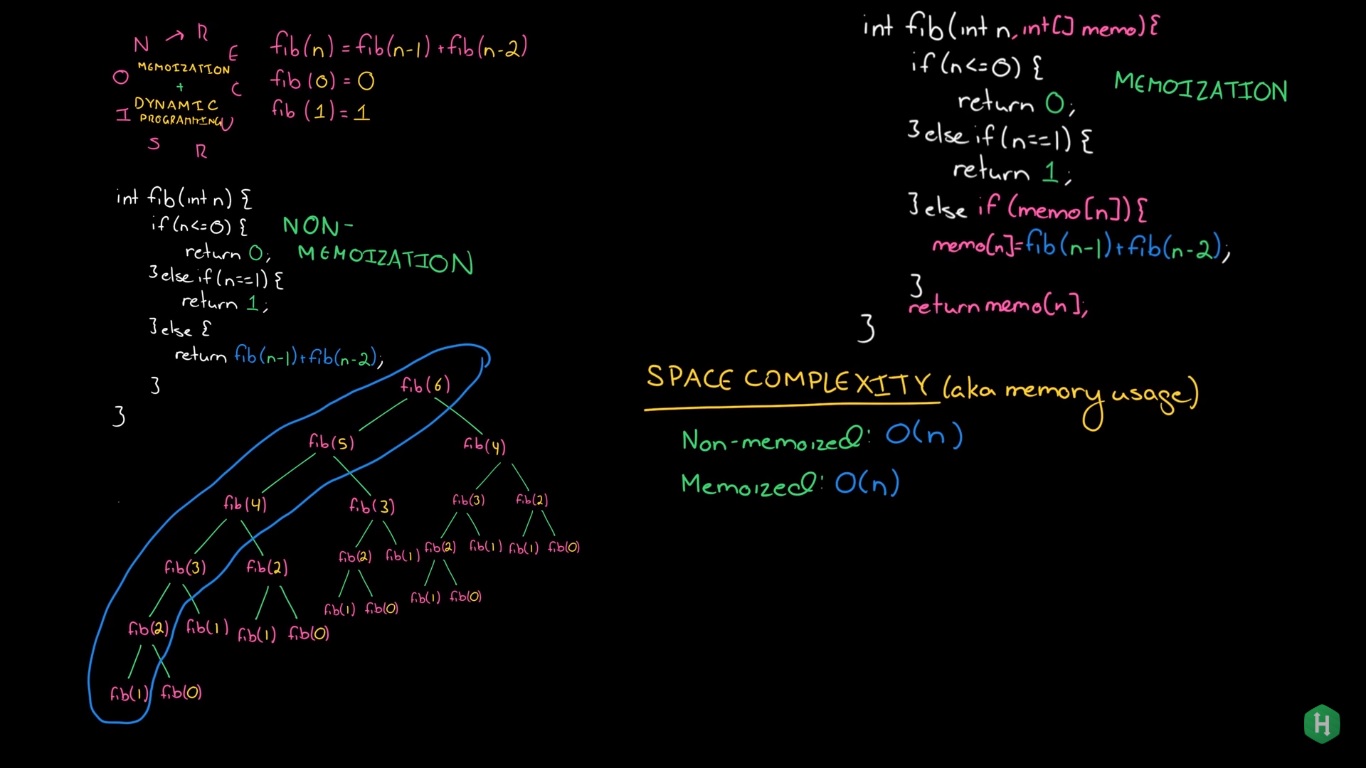 RECURSION
MEMOIZATION
+
DYNAMIC
PROGRAMMING
fib(n) = fib(n-1) + fib(n-2)
fib (0) = 0
fib (1) = 1
int fib(int n) {
if (n<=0) {
return 0;
}else if(n==1) {
return 1;
}else {
return fib(n-1)+fib(n-2);
}
}
NON-
MEMOIZATION
fib(6)
fib(5) fib(4)
fib(4) fib(3) fib(3) fib(2)
fib(3) fib(2) fib(2) fib(1) fib(2) fib(1) fib(1) fib(0)
fib(2) fib(1) fib(1) fib(0) fib(1) fib(0) fib(1) fib(0)
fib(1) fib(0)
int fib(int n, int[] memo){
if (n<=0) {
return 0;
}else if (n==1) {
return 1;
}else if (memo[n]){
memo[n]=fib(n-1)+fib(n-2);
}
return memo[n];
}
MEMOIZATION
SPACE COMPLEXITY (aka memory usage)
Non-memoized: O(n)
Memoized: O(n)
H